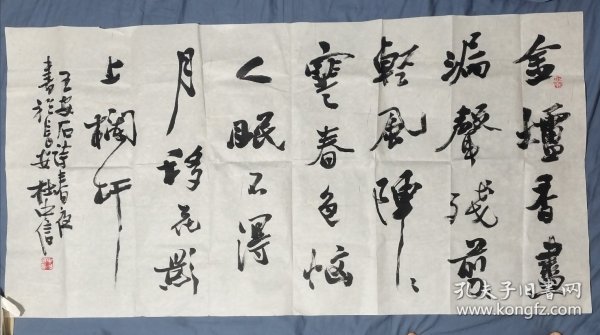 金爐香盡
漏聲殘剪
輕風陣々
寒春色惱
人眠不得
月移花影
上欄杆
王安石詩春夜
書於長安杜中信
孔夫子旧书网
www.kongfz.com